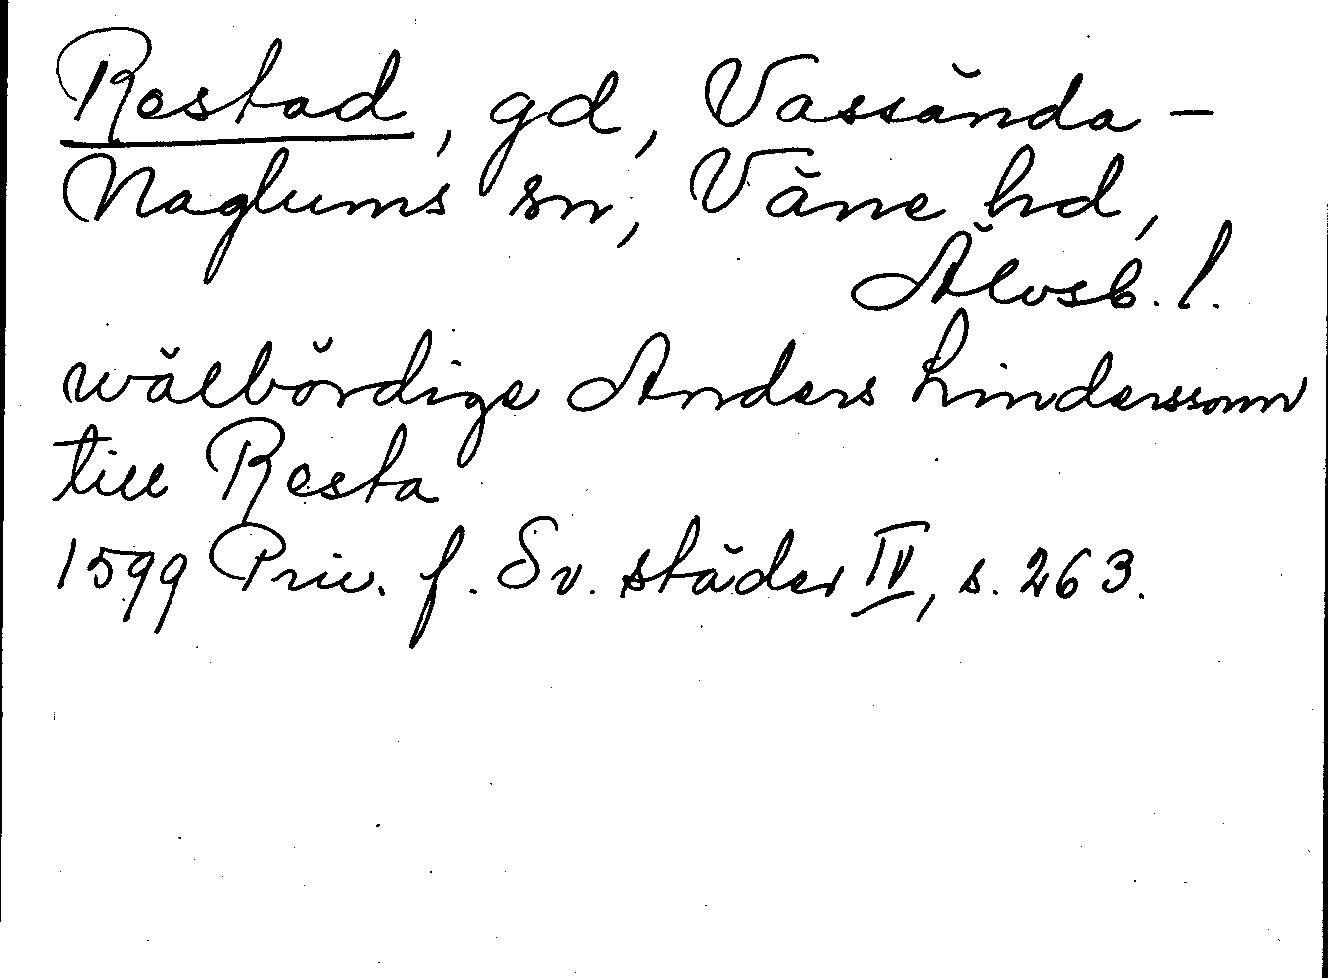 Restad, gd, Vassända-
Naglums sn, Väne hd,
Älvsb. l.
wälbördige Anders Linderssonn
till Resta
1599 Priv. f. Sv. städer IV, s. 263.